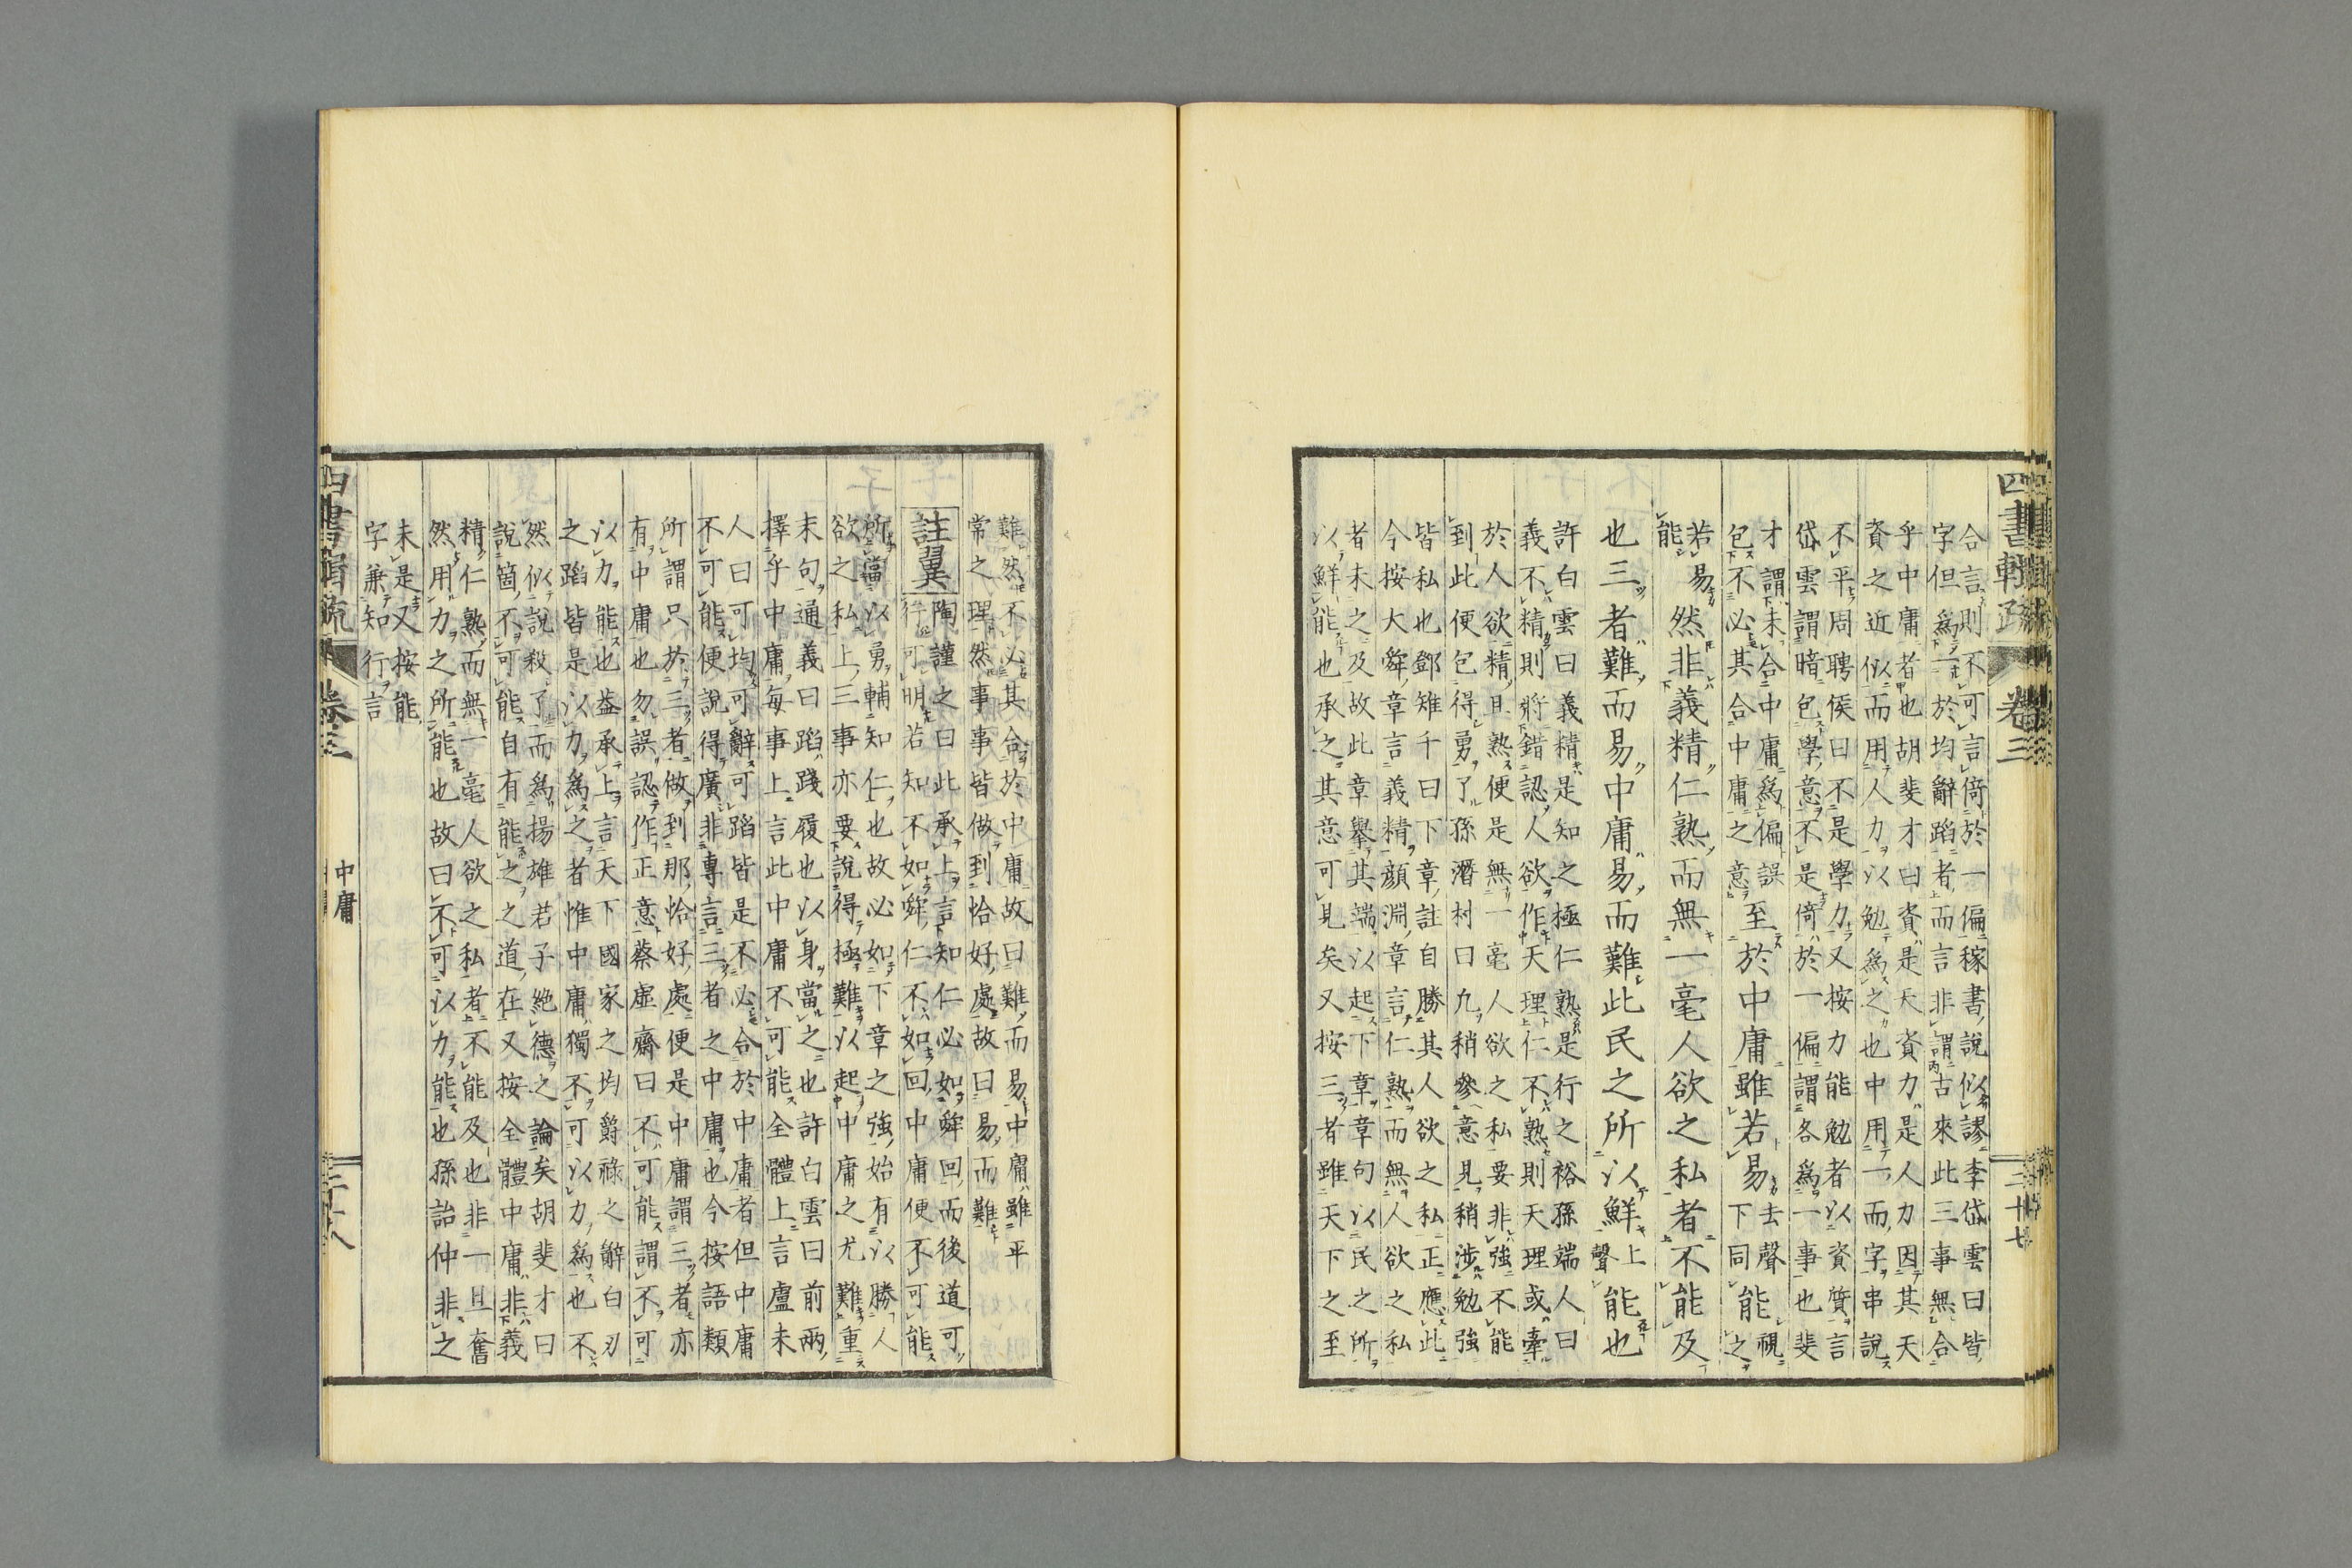 四書輯疏
卷三
二十七
合言則不可言倚於一偏稼書說似謬李岱雲曰皆
字但爲一於均辭蹈者而言非謂古來此三事無合
乎中庸者也胡斐才曰資是天資力是人力因其天
資之近似而用人力以勉爲之也中用一而字串說
不平周聘侯曰不是學力又按力能勉者以資質言
岱雲謂暗包學意不是倚於一偏謂各爲一事也斐
才謂未合中庸爲偏誤
包不必其合中庸之意
至於中庸雖若易
去聲視
下同
能
之
若
能
易
然非義精仁熟而無一毫人欲之私者不能及
也三者難而易中庸易而難此民之所以鮮
上
聲
能也
許白雲曰義精是知之極仁熟是行之裕孫端人曰
義不精則將錯認人欲作天理仁不熟則天理或牽
於人欲精且熟便是無一毫人欲之私要非強不能
到此便包得勇了孫潛村曰九稍參意見稍涉勉強
皆私也鄧雉千曰下章註自勝其人欲之私正應此
今按大舜章言義精顏淵章言仁熟而無人欲之私
者未之及故此章舉其端以起下章章句以民之所
以鮮能也承之其意可見矣又按三者雖天下之至
難然不必其合於中庸故曰難而易中庸雖平
常之理然事事皆做到恰好處故曰易而難
註翼
陶謹之曰此承上言知仁必如舜回而後道可
行可明若知不如舜仁不如回中庸便不可能
所當以勇輔知仁也故必如下章之強始有以勝人
欲之私上三事亦要說得極難以起中庸之尤難重
末句通義曰蹈踐履也以身當之也許白雲曰前兩
擇乎中庸每事上言此中庸不可能全體上言盧未
人曰可均可辭可蹈皆是不必合於中庸者但中庸
不可能便說得廣非專言三者之中庸也今按語類
所謂只於三者做到那恰好處便是中庸謂三者亦
有中庸也勿誤認作正意蔡虛齋曰不可能謂不可
以力能也葢承上言天下國家之均爵祿之辭白刃
之蹈皆是以力爲之者惟中庸獨不可以力爲也不
然似說殺了而爲揚雄若子絶德之論矣胡斐才曰
說箇不可能自有能之之道在又按全體中庸非義
精仁熟而無一毫人欲之私者不能及也非一旦奮
然用力之所能也故曰不可以力能也孫詒仲非之
未是又按能
字兼知行言
四書輯疏
卷三
中庸